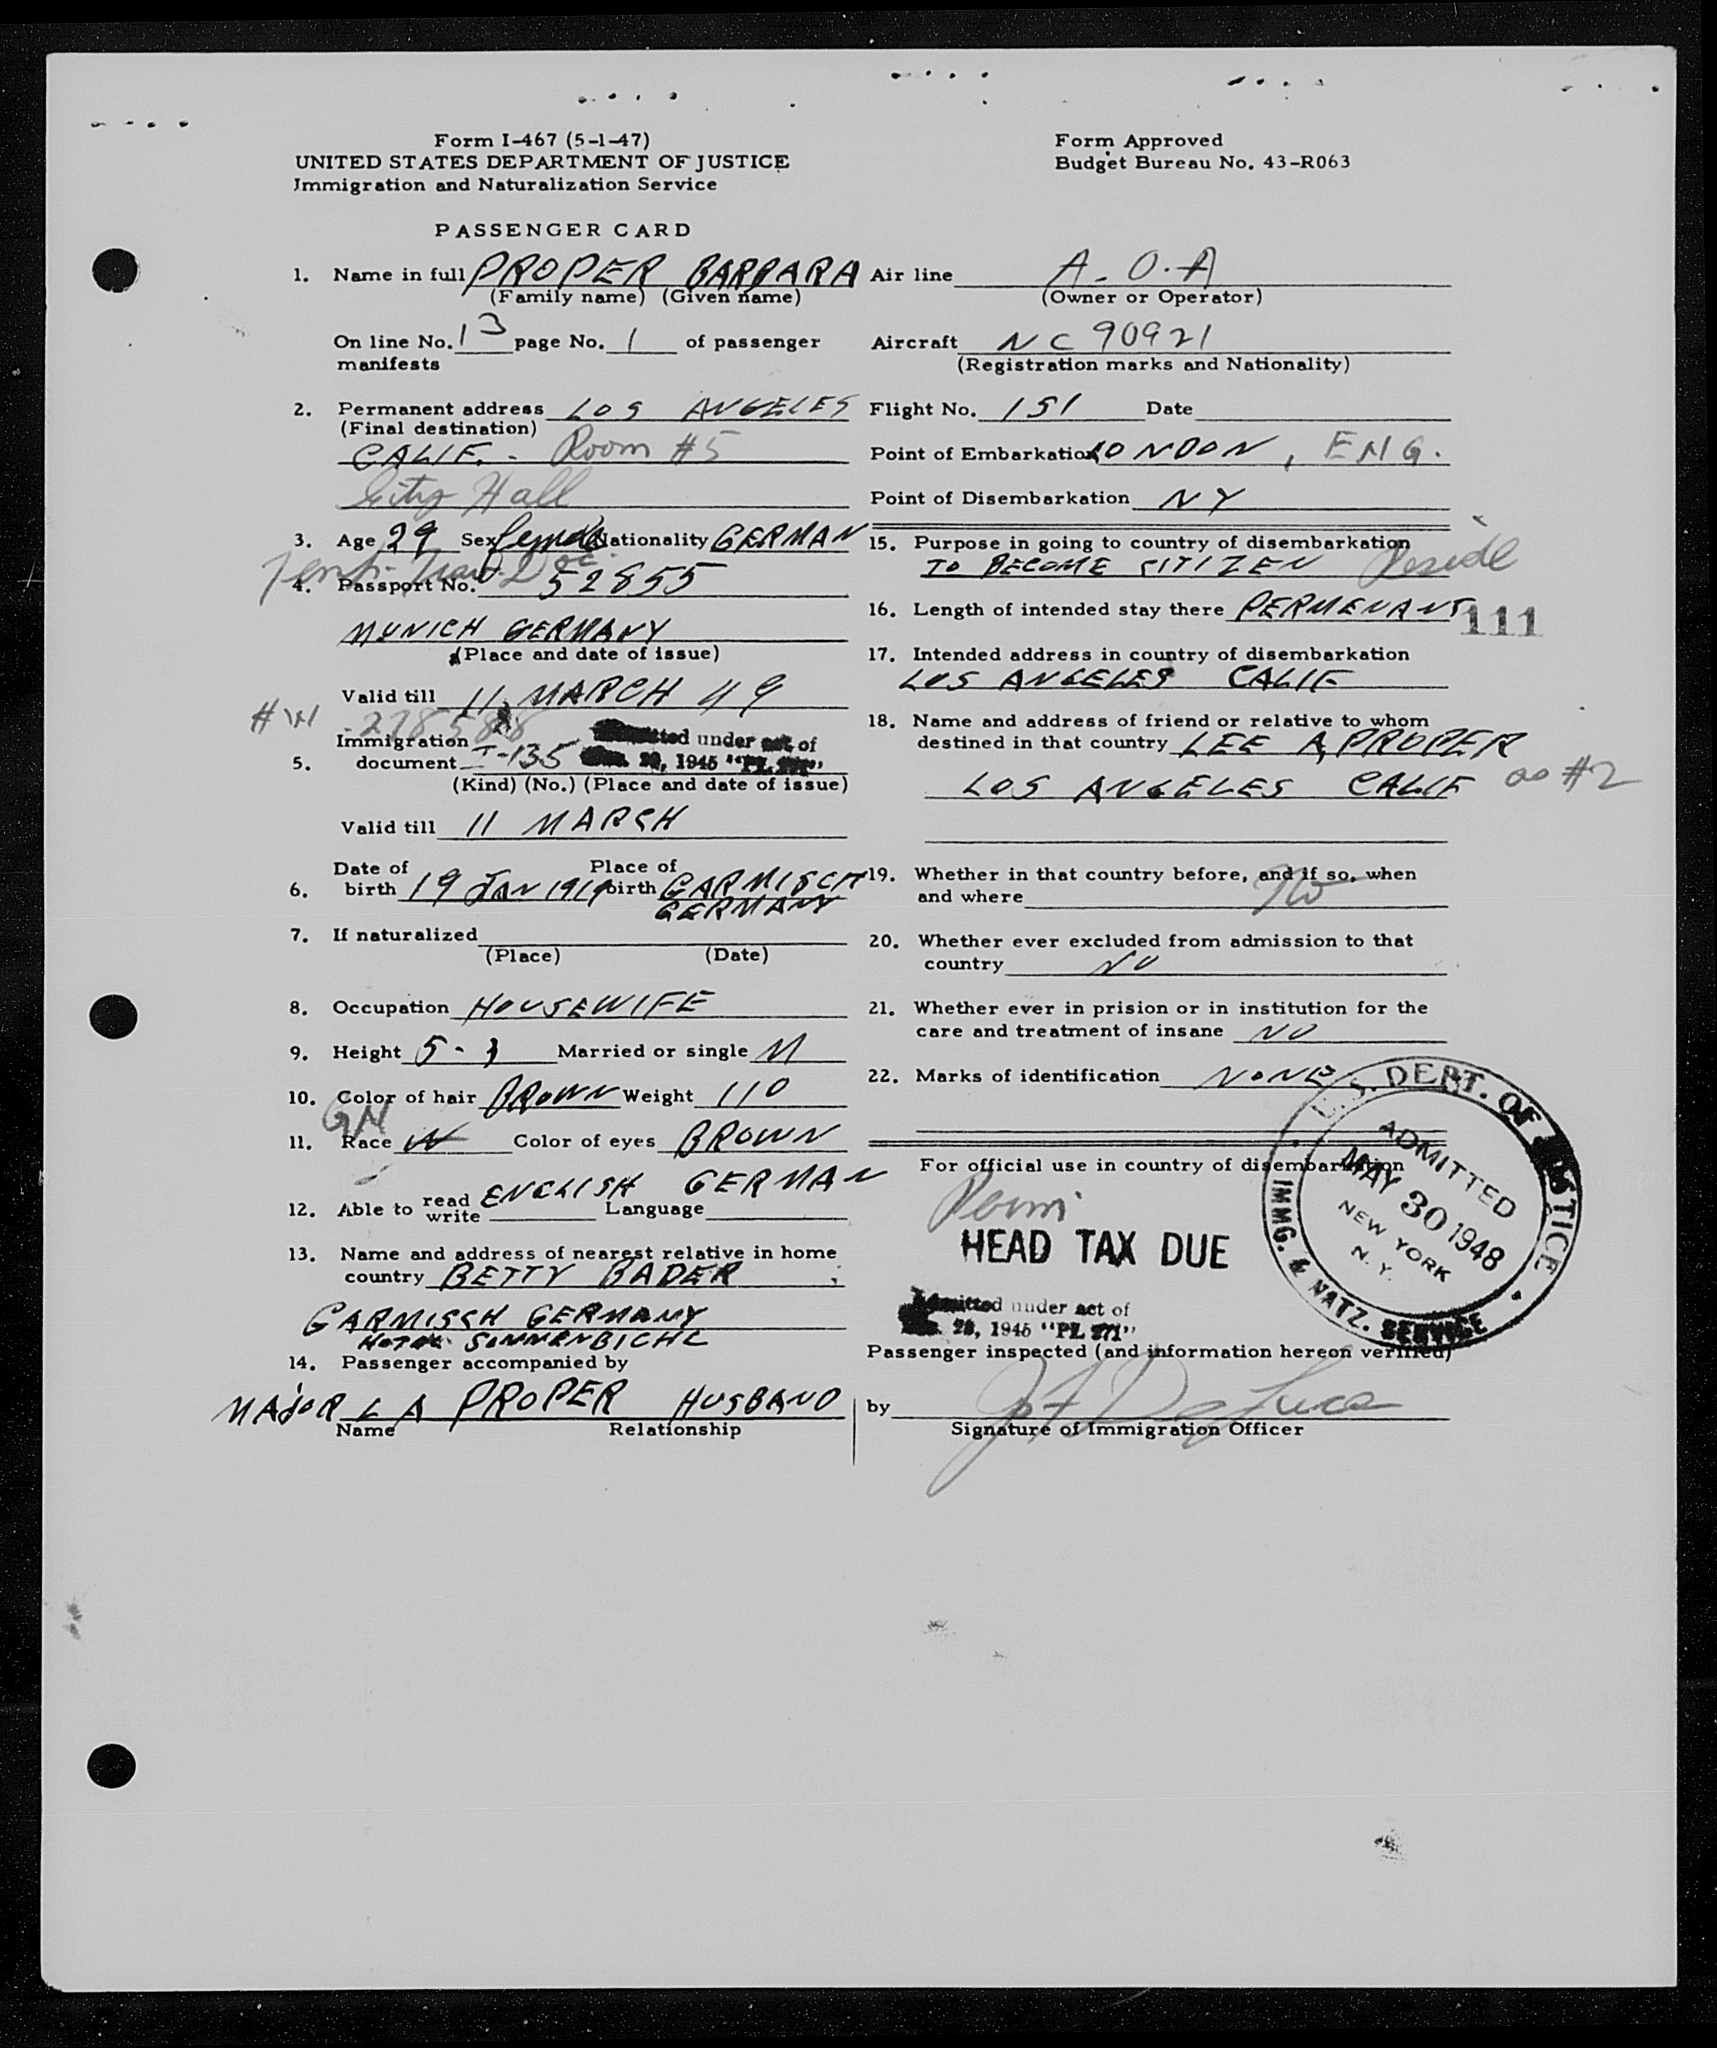 Form I-467 (5-1-47)
UNITED STATES DEPARTMENT OF JUSTICE
Immigration and Naturalization Service
Form Approved
Budget Bureau No. 43-R063
PASSENGER CARD
1. Name in full PROPER BARBARA
(Family name) (Given name)
On line No. 13 page No. 1 of passenger
manifests
2. Permanent address LOS ANGELES
(Final destination)
CALIF. - Room #5
City Hall
3. Age 29 Sex female Nationality GERMAN
Temp. Trav. Doc.
4. Passport No. 52855
MUNICH GERMANY
(Place and date of issue)
Valid till 11 MARCH 49
Immigration
5. document I-135 Admitted under act of
Dec. 28, 1945 "PL 271"
(Kind) (No.) (Place and date of issue)
Valid till 11 MARCH
Date of Place of
6. birth 19 JAN 1919 birth GARMISCH
GERMANY
7. If naturalized
(Place) (Date)
8. Occupation HOUSEWIFE
9. Height 5- Married or single M
10. Color of hair BROWN Weight 110
GM
11. Race W Color of eyes BROWN
12. Able to read write ENGLISH GERMAN Language
13. Name and address of nearest relative in home
country BETTY BADER
GARMISCH GERMANY
HOTEL SOMMENBICHL
14. Passenger accompanied by
MAJOR L A PROPER HUSBAND
Name Relationship
Air line A.O.A
(Owner or Operator)
Aircraft NC 90921
(Registration marks and Nationality)
Flight No. 151 Date
Point of Embarkation LONDON, ENG.
Point of Disembarkation NY
15. Purpose in going to country of disembarkation
TO BECOME CITIZEN Reside
16. Length of intended stay there PERMENANT
111
17. Intended address in country of disembarkation
LOS ANGELES CALIF
18. Name and address of friend or relative to whom
destined in that country LEE A PROPER
LOS ANGELES CALIF as #2
19. Whether in that country before, and if so, when
and where No
20. Whether ever excluded from admission to that
country NO
21. Whether ever in prision or in institution for the
care and treatment of insane NO
22. Marks of identification NONE
For official use in country of disembarkation
Perm.
HEAD TAX DUE
U.S. DEPT. OF JUSTICE
ADMITTED
MAY 30 1948
NEW YORK
N. Y.
IMMG. & NATZ. SERVICE
Admitted under act of
Dec. 28, 1945 "PL 271"
Passenger inspected (and information hereon verified)
by
Signature of Immigration Officer